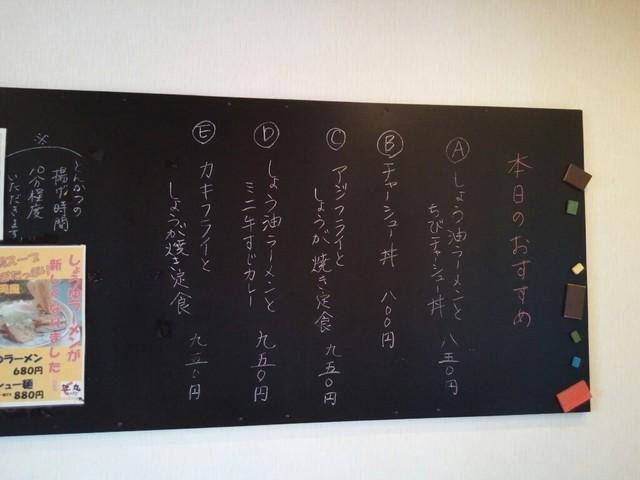 本日のおすすめ
Ⓐ しょう油ラーメンと
ちびチャーシュー丼 八五〇円
Ⓑ チャーシュー丼 八〇〇円
Ⓒ アジフライと
しょうが焼き定食 九五〇円
Ⓓ しょう油ラーメンと
ミニ牛すじカレー 九五〇円
Ⓔ カキフライと
しょうが焼き定食 九五〇円
※
とんかつの
揚げ時間
10分程度
いただきます
しょうゆラーメンが
新しくなりました
スープ
ラーメン
680円
シュー麺
880円